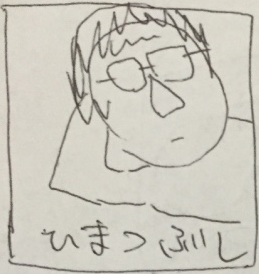 ひまつぶし